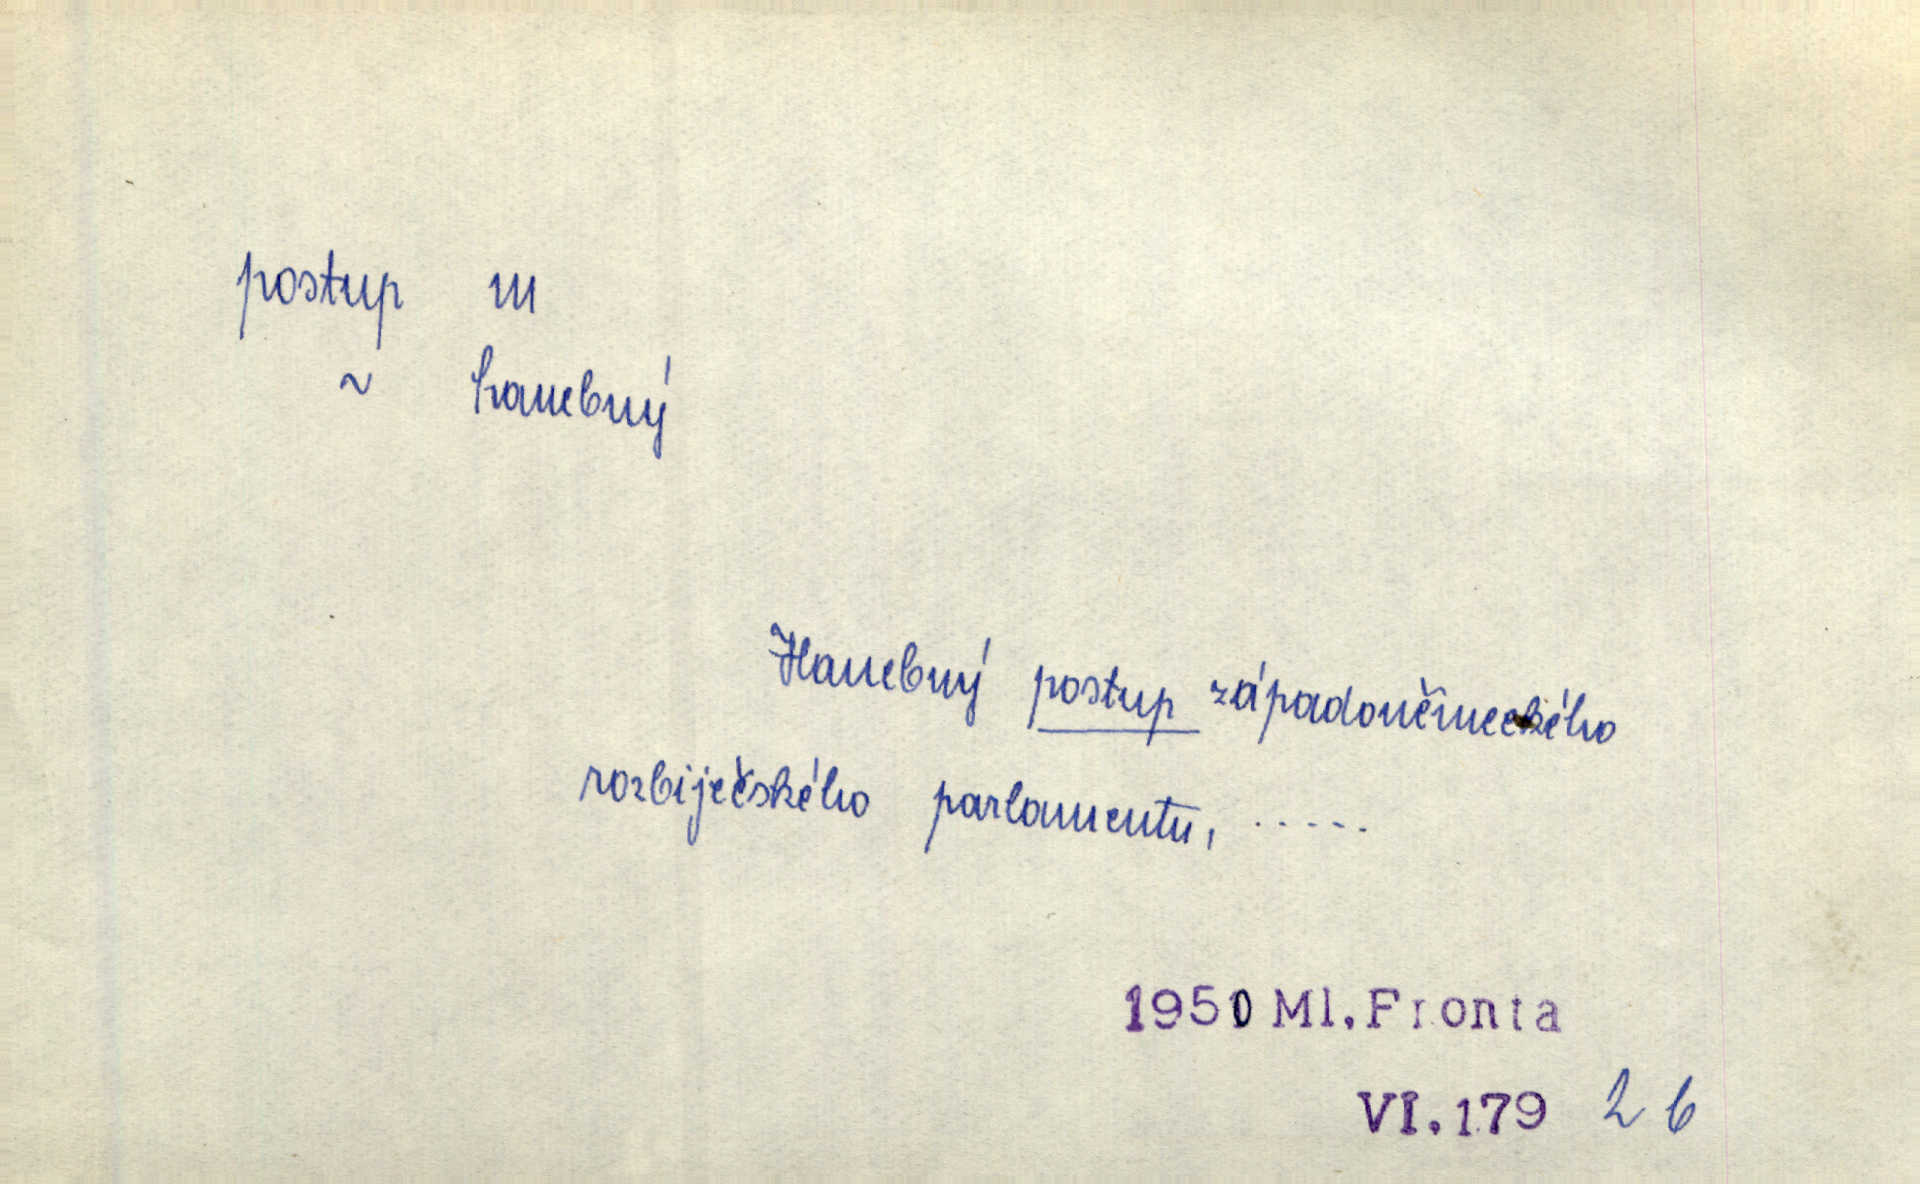 postup m
~ hanebný
Hanebný postup západoněmeckého
rozbiječského parlamentu, .....
1950 Ml.Fronta
VI.179 2 b